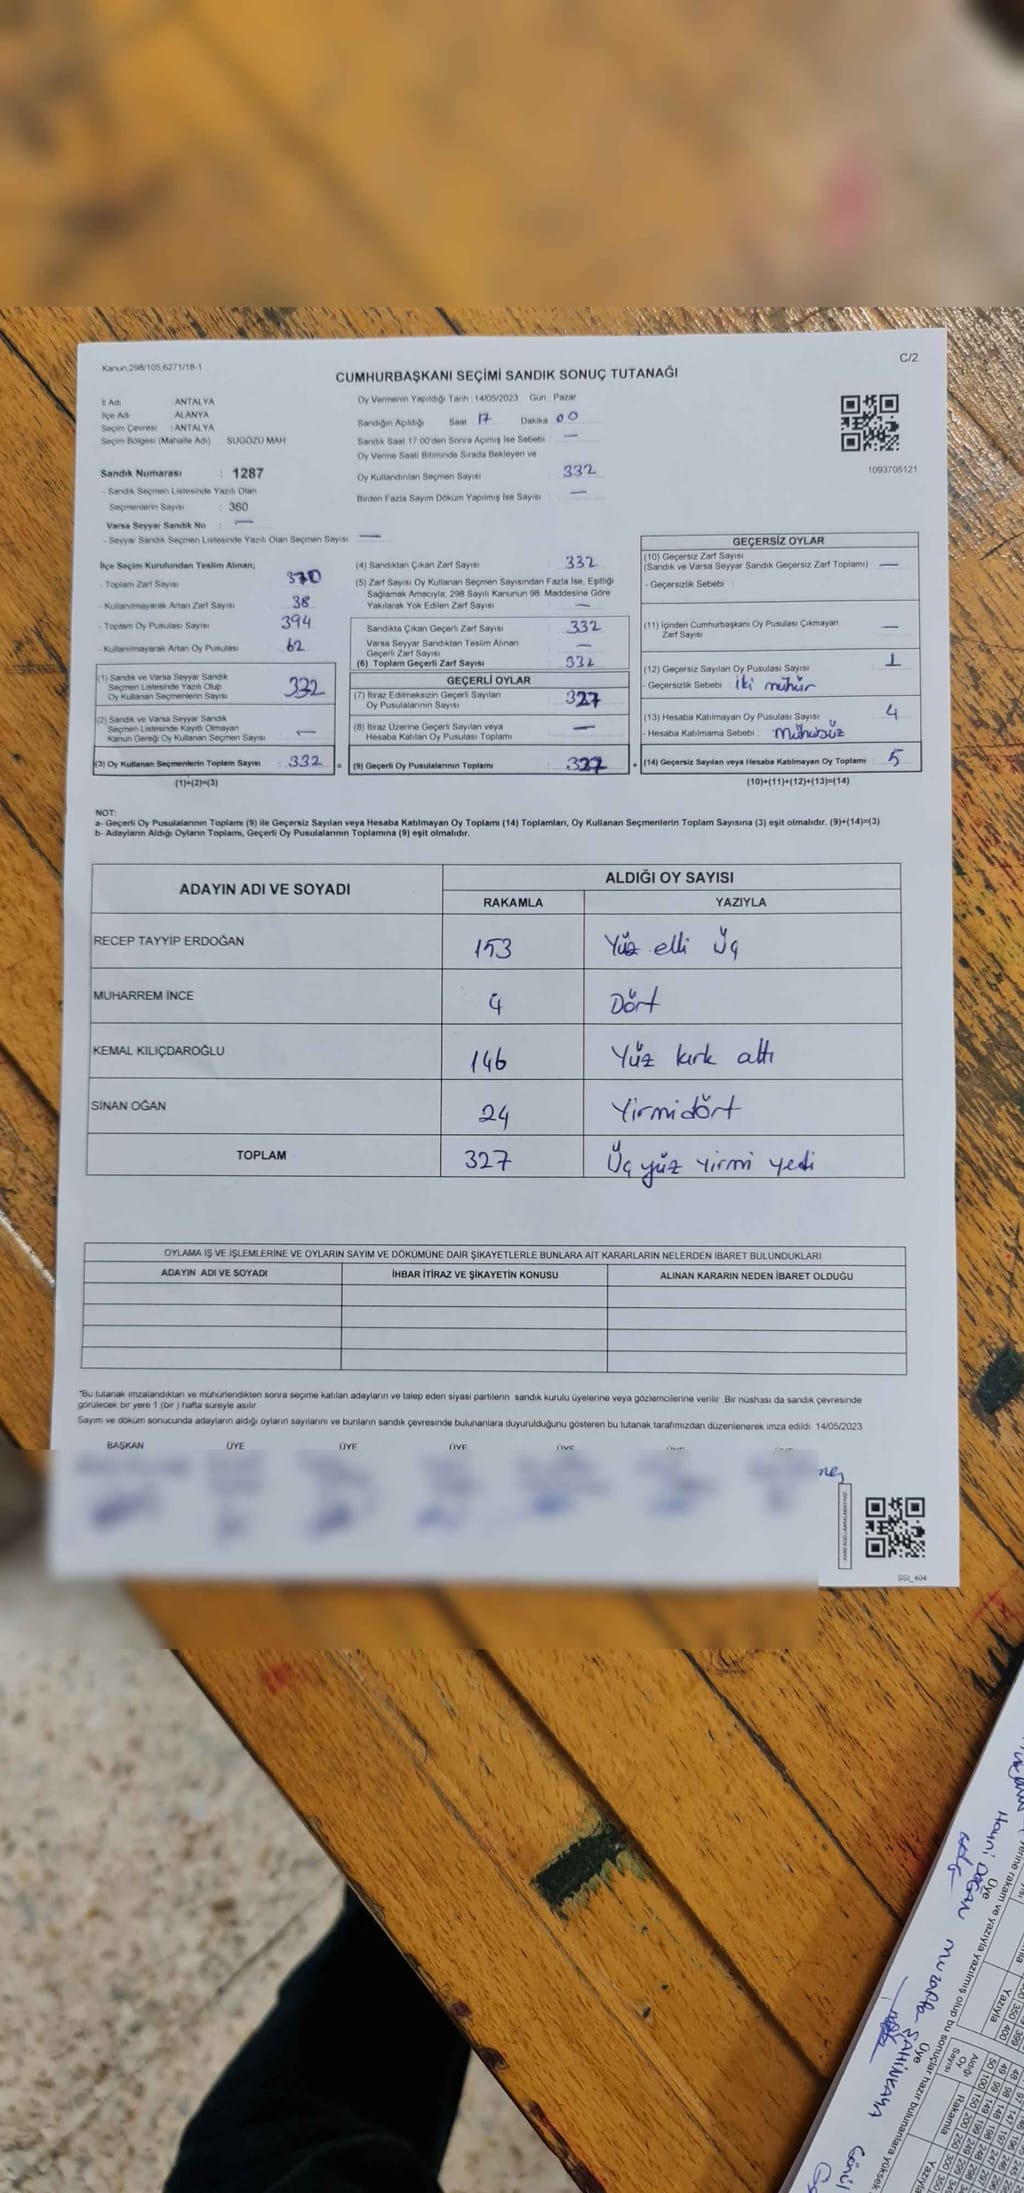 Kanun,298/105,6271/18-1
C/2
CUMHURBAŞKANI SEÇİMİ SANDIK SONUÇ TUTANAĞI
İl Adı : ANTALYA
İlçe Adı : ALANYA
Seçim Çevresi : ANTALYA
Seçim Bölgesi (Mahalle Adı) SUGÖZÜ MAH
Sandık Numarası : 1287
- Sandık Seçmen Listesinde Yazılı Olan
Seçmenlerin Sayısı : 360
Varsa Seyyar Sandık No : —
- Seyyar Sandık Seçmen Listesinde Yazılı Olan Seçmen Sayısı —
Oy Vermenin Yapıldığı Tarih : 14/05/2023 Gün : Pazar
Sandığın Açıldığı Saat 17 Dakika 00
Sandık Saat 17.00'den Sonra Açılmış İse Sebebi : —
Oy Verme Saati Bitiminde Sırada Bekleyen ve
Oy Kullandırılan Seçmen Sayısı : 332
Birden Fazla Sayım Döküm Yapılmış İse Sayısı : —
1093705121
İlçe Seçim Kurulundan Teslim Alınan;
- Toplam Zarf Sayısı : 370
- Kullanılmayarak Artan Zarf Sayısı : 38
- Toplam Oy Pusulası Sayısı : 394
- Kullanılmayarak Artan Oy Pusulası : 62
(1) Sandık ve Varsa Seyyar Sandık
Seçmen Listesinde Yazılı Olup
Oy Kullanan Seçmenlerin Sayısı : 332
(2) Sandık ve Varsa Seyyar Sandık
Seçmen Listesinde Kayıtlı Olmayan
Kanun Gereği Oy Kullanan Seçmen Sayısı : —
(3) Oy Kullanan Seçmenlerin Toplam Sayısı : 332 =
(1)+(2)=(3)
(4) Sandıktan Çıkan Zarf Sayısı : 332
(5) Zarf Sayısı Oy Kullanan Seçmen Sayısından Fazla İse, Eşitliği
Sağlamak Amacıyla, 298 Sayılı Kanunun 98. Maddesine Göre
Yakılarak Yok Edilen Zarf Sayısı : —
Sandıkta Çıkan Geçerli Zarf Sayısı : 332
Varsa Seyyar Sandıktan Teslim Alınan
Geçerli Zarf Sayısı : —
(6) Toplam Geçerli Zarf Sayısı : 332
GEÇERLİ OYLAR
(7) İtiraz Edilmeksizin Geçerli Sayılan
Oy Pusulalarının Sayısı : 327
(8) İtiraz Üzerine Geçerli Sayılan veya
Hesaba Katılan Oy Pusulası Toplamı : —
(9) Geçerli Oy Pusulalarının Toplamı : 327 +
GEÇERSİZ OYLAR
(10) Geçersiz Zarf Sayısı
(Sandık ve Varsa Seyyar Sandık Geçersiz Zarf Toplamı) : —
- Geçersizlik Sebebi :
(11) İçinden Cumhurbaşkanı Oy Pusulası Çıkmayan
Zarf Sayısı : —
(12) Geçersiz Sayılan Oy Pusulası Sayısı : 1
- Geçersizlik Sebebi : İki mühür
(13) Hesaba Katılmayan Oy Pusulası Sayısı : 4
- Hesaba Katılmama Sebebi : Mühürsüz
(14) Geçersiz Sayılan veya Hesaba Katılmayan Oy Toplamı : 5
(10)+(11)+(12)+(13)=(14)
NOT:
a- Geçerli Oy Pusulalarının Toplamı (9) ile Geçersiz Sayılan veya Hesaba Katılmayan Oy Toplamı (14) Toplamları, Oy Kullanan Seçmenlerin Toplam Sayısına (3) eşit olmalıdır. (9)+(14)=(3)
b- Adayların Aldığı Oyların Toplamı, Geçerli Oy Pusulalarının Toplamına (9) eşit olmalıdır.
ADAYIN ADI VE SOYADI
ALDIĞI OY SAYISI
RAKAMLA YAZIYLA
RECEP TAYYİP ERDOĞAN 153 Yüz elli Üç
MUHARREM İNCE 4 Dört
KEMAL KILIÇDAROĞLU 146 Yüz kırk altı
SİNAN OĞAN 24 Yirmidört
TOPLAM 327 Üç yüz yirmi yedi
OYLAMA İŞ VE İŞLEMLERİNE VE OYLARIN SAYIM VE DÖKÜMÜNE DAİR ŞİKAYETLERLE BUNLARA AİT KARARLARIN NELERDEN İBARET BULUNDUKLARI
ADAYIN ADI VE SOYADI İHBAR İTİRAZ VE ŞİKAYETİN KONUSU ALINAN KARARIN NEDEN İBARET OLDUĞU
*Bu tutanak imzalandıktan ve mühürlendikten sonra seçime katılan adayların ve talep eden siyasi partilerin sandık kurulu üyelerine veya gözlemcilerine verilir. Bir nüshası da sandık çevresinde
görülecek bir yere 1 (bir ) hafta süreyle asılır.
Sayım ve döküm sonucunda adayların aldığı oyların sayılarını ve bunların sandık çevresinde bulunanlara duyurulduğunu gösteren bu tutanak tarafımızdan düzenlenerek imza edildi. 14/05/2023
BAŞKAN ÜYE ÜYE ÜYE ÜYE ÜYE ÜYE
SSI_404